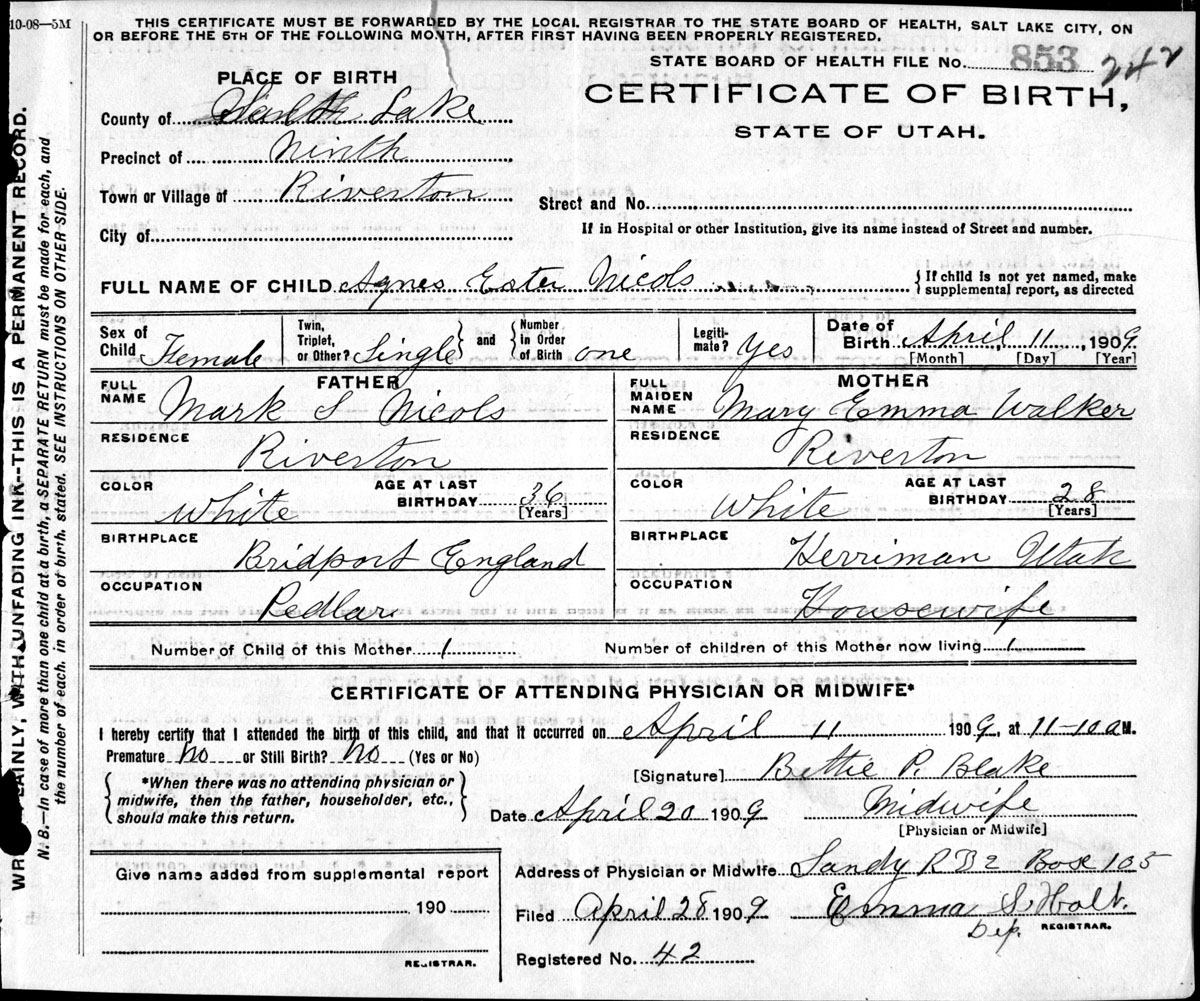 10-08—5M
THIS CERTIFICATE MUST BE FORWARDED BY THE LOCAL REGISTRAR TO THE STATE BOARD OF HEALTH, SALT LAKE CITY, ON
OR BEFORE THE 5TH OF THE FOLLOWING MONTH, AFTER FIRST HAVING BEEN PROPERLY REGISTERED.
STATE BOARD OF HEALTH FILE No. 853 242
PLACE OF BIRTH
CERTIFICATE OF BIRTH,
STATE OF UTAH.
County of Salt Lake
Precinct of Ninth
Town or Village of Riverton
Street and No.
City of
If in Hospital or other Institution, give its name instead of Street and number.
FULL NAME OF CHILD Agnes Ester Nicols
{ If child is not yet named, make
supplemental report, as directed
Sex of Child Female
Twin, Triplet, or Other? Single } and { Number in Order of Birth one
Legiti-mate? Yes
Date of Birth April 11, 1909
[Month] [Day] [Year]
FATHER
FULL NAME Mark S Nicols
RESIDENCE Riverton
COLOR White
AGE AT LAST BIRTHDAY 36 [Years]
BIRTHPLACE Bridport England
OCCUPATION Pedlar
MOTHER
FULL MAIDEN NAME Mary Emma Walker
RESIDENCE Riverton
COLOR White
AGE AT LAST BIRTHDAY 28 [Years]
BIRTHPLACE Herriman Utah
OCCUPATION Housewife
Number of Child of this Mother 1
Number of children of this Mother now living 1
CERTIFICATE OF ATTENDING PHYSICIAN OR MIDWIFE*
I hereby certify that I attended the birth of this child, and that it occurred on April 11 1909, at 11-10 a M.
Premature No or Still Birth? No (Yes or No)
{ *When there was no attending physician or
midwife, then the father, householder, etc.,
should make this return. }
[Signature] Bettie P. Blake
Date April 20 1909
Midwife
[Physician or Midwife]
Address of Physician or Midwife Sandy R D 2 Box 105
Filed April 28 1909
Emma S. Holt.
Dep. REGISTRAR.
Registered No. 42
Give name added from supplemental report
190
REGISTRAR.
PLAINLY, WITH UNFADING INK--THIS IS A PERMANENT RECORD.
N. B.—In case of more than one child at a birth, a SEPARATE RETURN must be made for each, and
the number of each, in order of birth, stated. SEE INSTRUCTIONS ON OTHER SIDE.